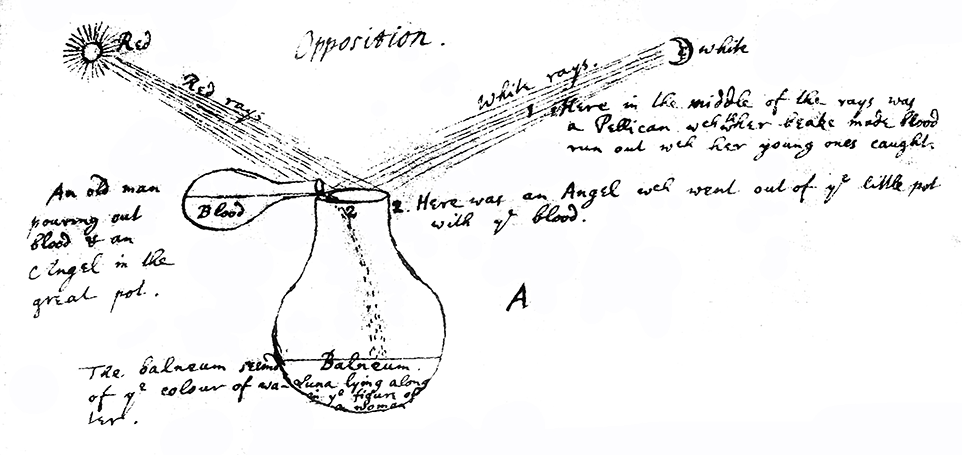 Opposition.
Red
white
Red rays
White rays.
1. Here in the middle of the rays was
a Pellican wch wth her beake made blood
run out wch her young ones caught.
An old man
pouring out
blood & an
Angel in the
great pot.
Blood
2
2. Here was an Angel wch went out of ye little pot
with ye blood.
A
The balneum seems
of ye colour of wa-
ter.
Balneum
Luna lying along
in ye figure of
a woman